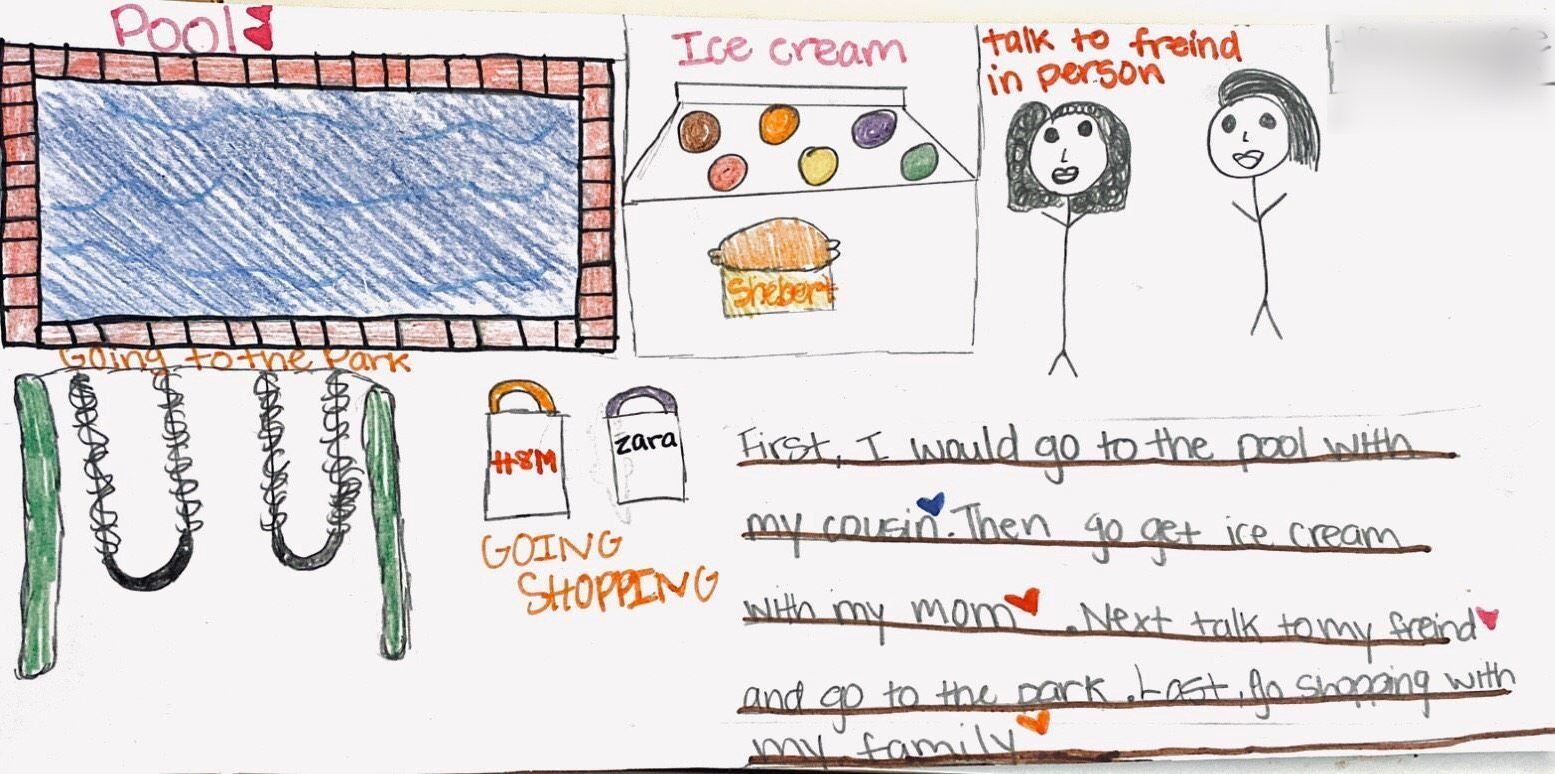 Pool
Ice cream
talk to freind
in person
Shebert
Going to the Park
H&M
zara
GOING
SHOPPING
First, I would go to the pool with
my cousin. Then go get ice cream
with my mom. Next talk to my freind
and go to the park. Last, go shopping with
my family